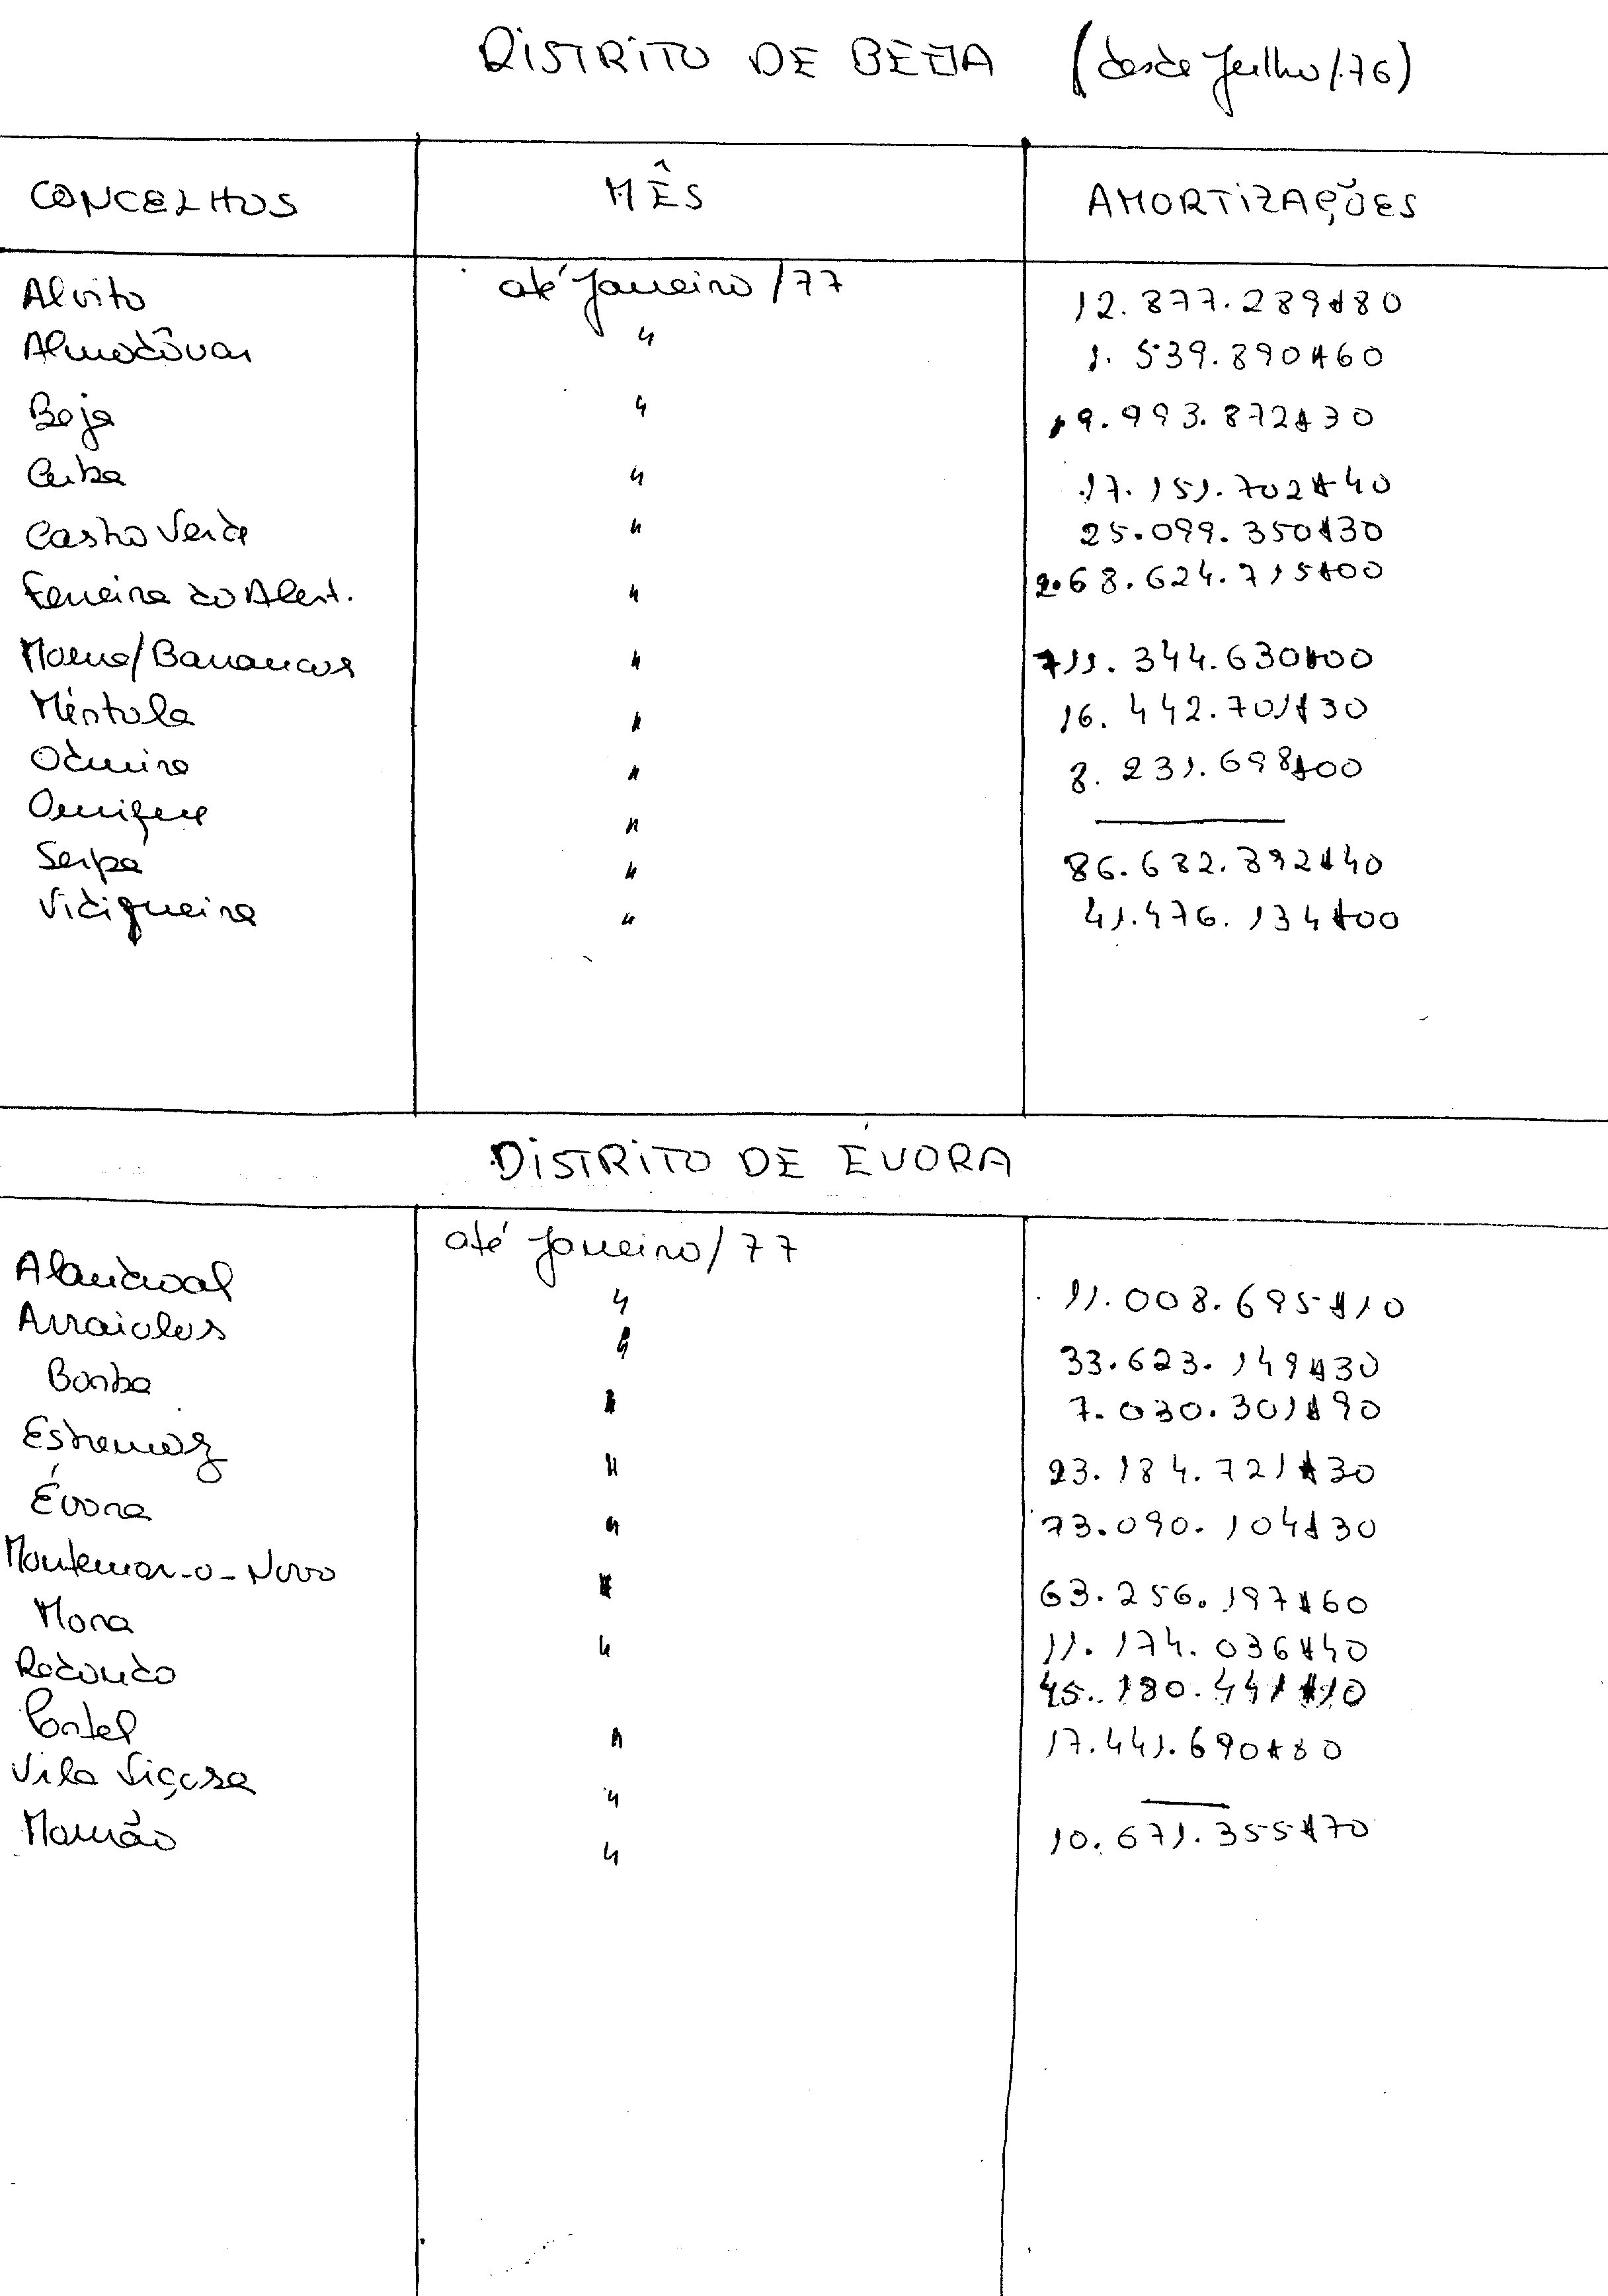 DISTRITO DE BEJA (desde Julho/76)
CONCELHOS MÊS AMORTIZAÇÕES
Alvito até Janeiro/77 12.877.289$80
Almodôvar " 1.539.890$60
Beja " 19.993.872$30
Cuba " 17.151.702$40
Castro Verde " 25.099.350$30
Ferreira do Alent. " 268.624.715$00
Moura/Barrancos " 711.344.630$00
Mértola " 16.442.701$30
Odemira " 8.231.698$00
Ourique " ———
Serpa " 86.682.892$40
Vidigueira " 41.476.134$00
DISTRITO DE ÉVORA
até Janeiro/77
Alandroal " 11.008.695$10
Arraiolos " 33.623.149$30
Borba " 7.030.301$90
Estremoz " 23.184.721$30
Évora " 73.090.104$30
Montemor-o-Novo " 63.256.197$60
Mora " 11.174.036$40
Redondo 45.180.441$10
Portel " 17.441.690$80
Vila Viçosa " ———
Mourão " 10.671.355$70